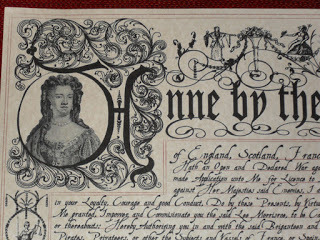 Anne by the
of England, Scotland, Franc
Hath to Open and Declared Her
made Application unto Me for Licence to
against Her Majesties said Enemies, I
in your Loyalty, Courage and good Conduct. Do by these Presents, by Virtu
Me granted, Impower and Commissionate you the said Lee Morrisroe, to be Ca
or thereabouts: Hereby Authorizing you in and with the said Briganteen and
Pirates, Privateers, or other the Subjects and Vassals of France, or Spain